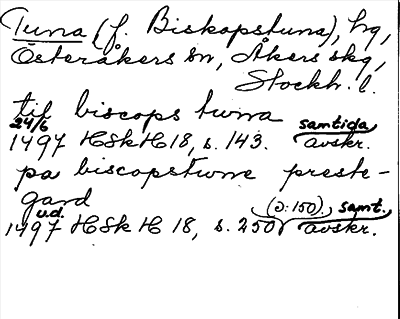 Tuna (f. Biskopstuna), hg,
Österåkers sn, Åkers skg,
Stockh. l.
til biscops twna
24/6 samtida
1497 HSH 18, s. 143. avskr.
pa biscopstwne preste-
gard
u.d. (ɔ: 150), samt.
1497 HSH 18, s. 250 avskr.